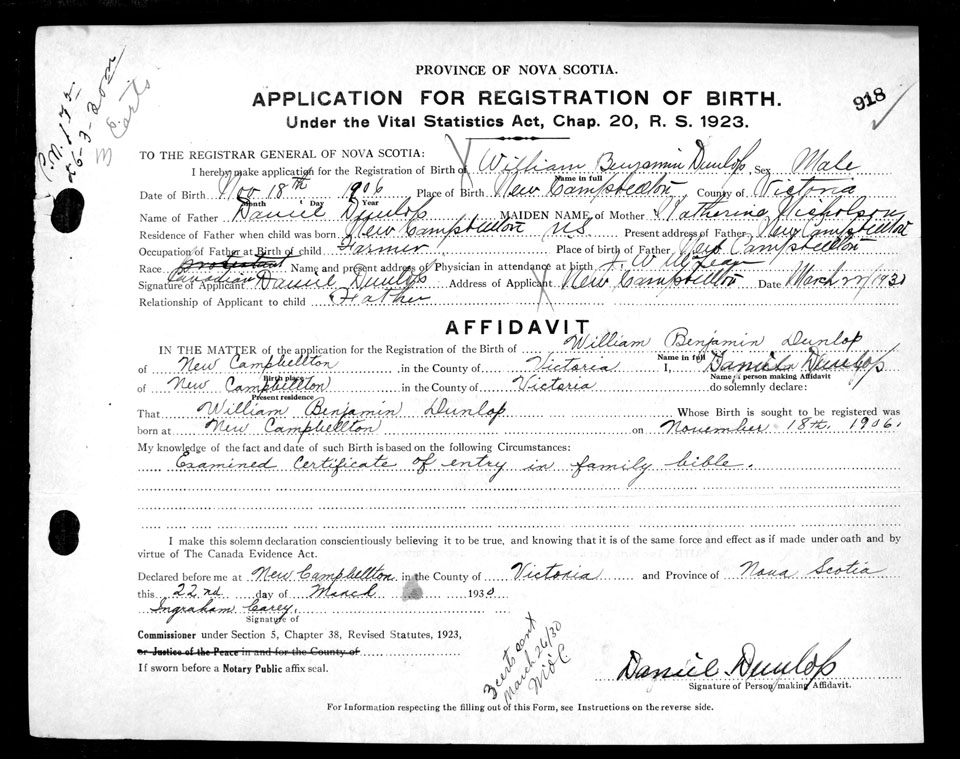 PROVINCE OF NOVA SCOTIA.
APPLICATION FOR REGISTRATION OF BIRTH.
918
Under the Vital Statistics Act, Chap. 20, R. S. 1923.
P.N. 173
26-3-30
Certs
TO THE REGISTRAR GENERAL OF NOVA SCOTIA:
I hereby make application for the Registration of Birth of William Benjamin Dunlop Sex Male
Name in full
Date of Birth Nov 18th 1906 Place of Birth New Campbellton County of Victoria
Month Day Year
Name of Father Daniel Dunlop MAIDEN NAME of Mother Katherine Nicholson
Residence of Father when child was born New Campbellton NS Present address of Father New Campbellton
Occupation of Father at Birth of child Farmer Place of birth of Father New Campbellton
Race Canadian Name and present address of Physician in attendance at birth
Signature of Applicant Daniel Dunlop Address of Applicant New Campbellton Date March 22/1930
Relationship of Applicant to child Father
AFFIDAVIT
IN THE MATTER of the application for the Registration of the Birth of William Benjamin Dunlop
Name in full
of New Campbellton in the County of Victoria I, Daniel Dunlop
Birth place Name of person making Affidavit
of New Campbellton in the County of Victoria do solemnly declare:
Present residence
That William Benjamin Dunlop Whose Birth is sought to be registered was
born at New Campbellton on November 18th, 1906.
My knowledge of the fact and date of such Birth is based on the following Circumstances:
Examined Certificate of entry in family bible.
I make this solemn declaration conscientiously believing it to be true, and knowing that it is of the same force and effect as if made under oath and by
virtue of The Canada Evidence Act.
Declared before me at New Campbellton in the County of Victoria and Province of Nova Scotia
this 22nd day of March 1930
Ingraham Carey.
Signature of
Commissioner under Section 5, Chapter 38, Revised Statutes, 1923,
or Justice of the Peace in and for the County of
If sworn before a Notary Public affix seal.
3 certs sent
March 26/30
Daniel Dunlop
Signature of Person making Affidavit.
For Information respecting the filling out of this Form, see Instructions on the reverse side.